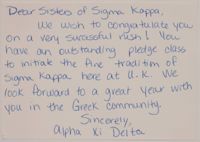 Dear Sisters of Sigma Kappa,
We wish to congratulate you
on a very successful rush! You
have an outstanding pledge class
to initiate the fine tradition of
Sigma Kappa here at U.K. We
look forward to a great year with
you in the Greek community.
Sincerely,
Alpha Xi Delta